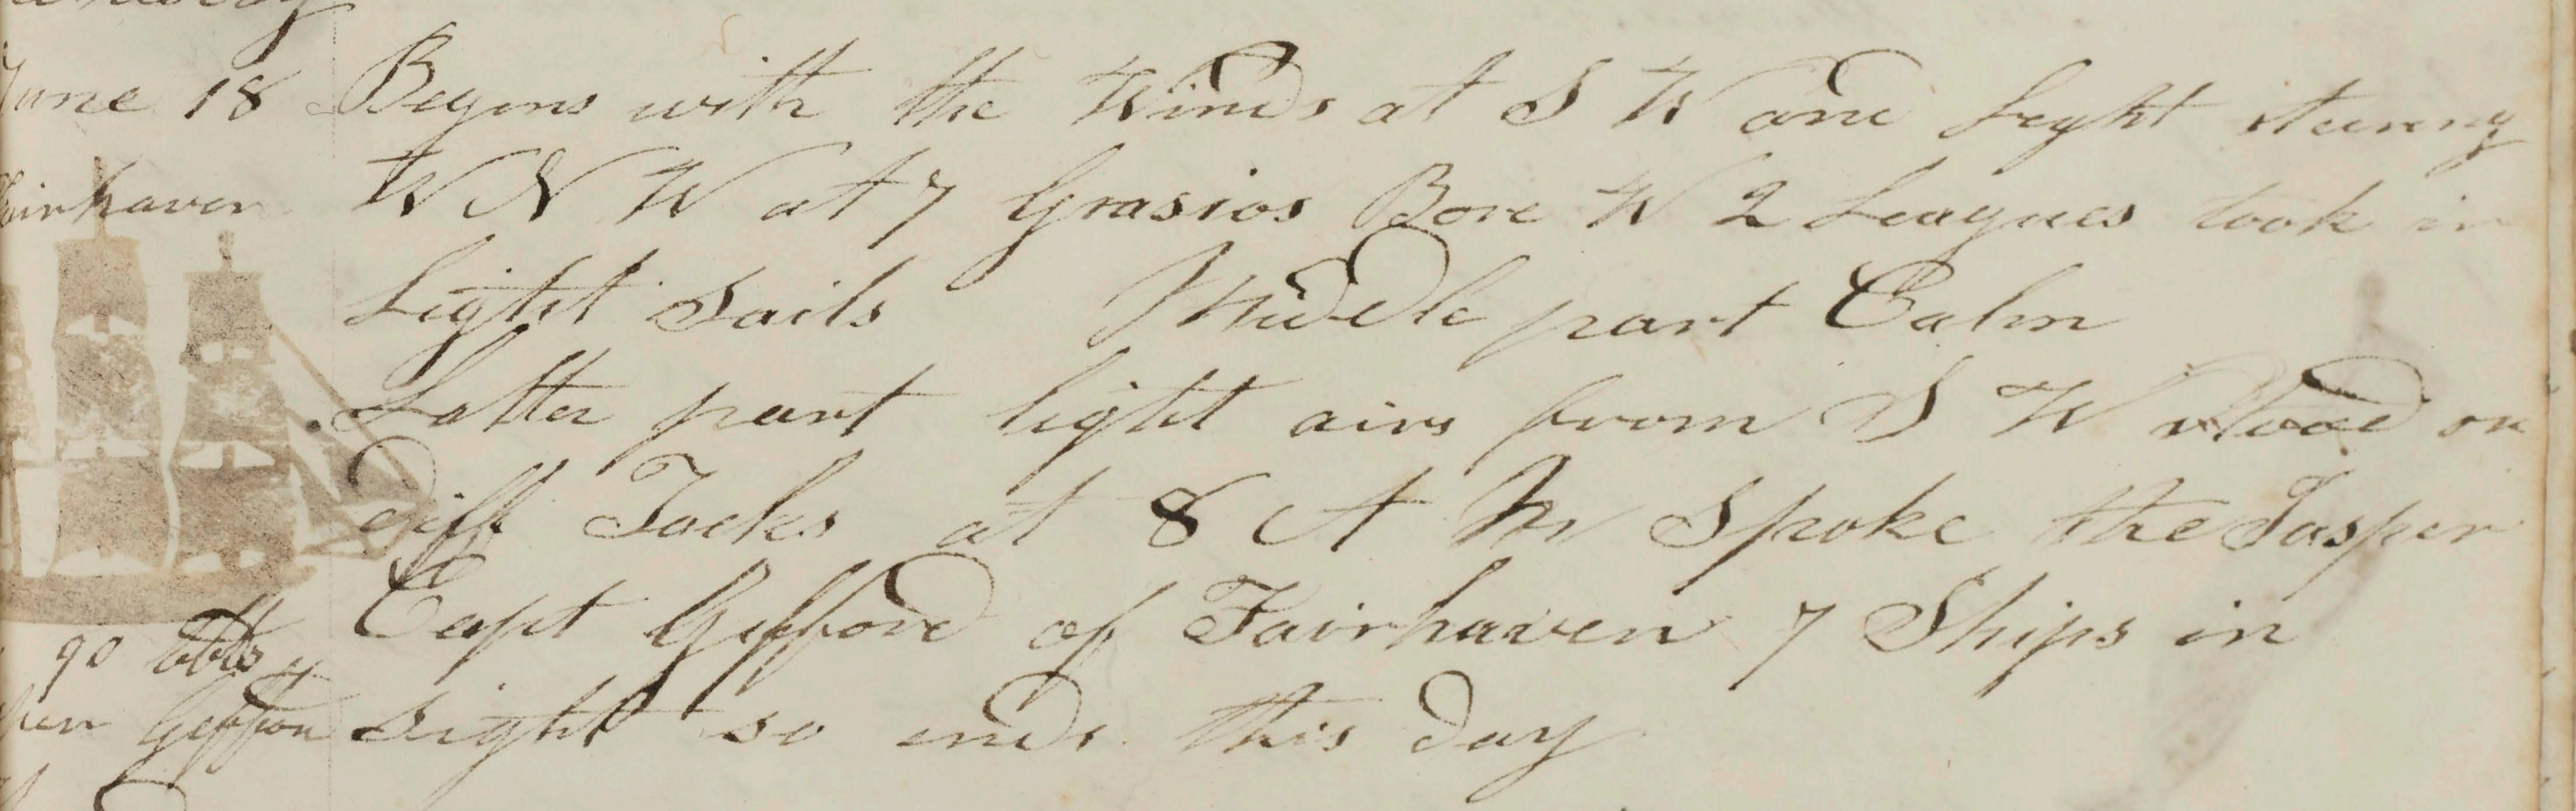 June 18 Begins with the Winds at S W and light steering
Fairhaven W N W at 7 Grasios Bore W 2 Leagues took in
Light Sails Middle part Calm
Latter part light airs from S W stood on
diff Tacks at 8 A M Spoke the Jasper
Capt Gifford of Fairhaven 7 Ships in
90 bbls
Sight so ends this day